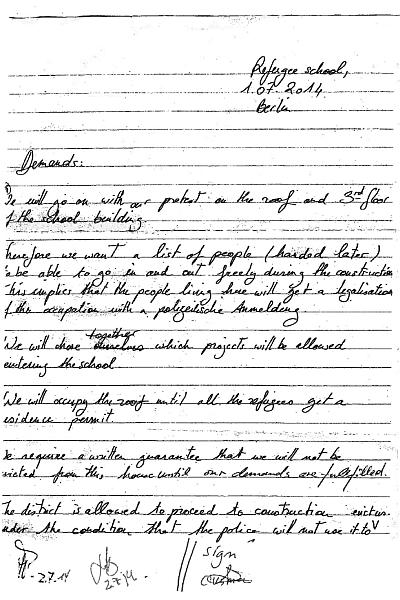 Refugee school,
1.07.2014
Berlin
Demands:
We will go on with our protest on the roof and 3rd floor
of the school building
Therefore we want a list of people (handed later)
to be able to go in and out freely during the construction
This implies that the people living here will get a legalisation
of the occupation with a polizeiliche Anmeldung
together
We will chose which projects will be allowed
entering the school
We will occupy the roof until all the refugees get a
residence permit.
We require a written guarantee that we will not be
evicted from this house until our demands are fullfilled.
The district is allowed to proceed to construction
under the condition that the police will not use it to
2.7.14
2.7.14.
sign